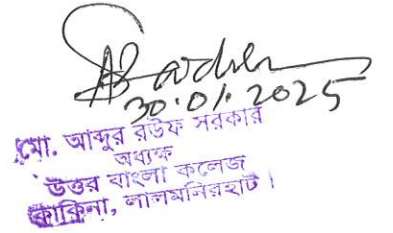 30.01.2025
মো. আব্দুর রউফ সরকার
অধ্যক্ষ
উত্তর বাংলা কলেজ
কাকিনা, লালমনিরহাট।